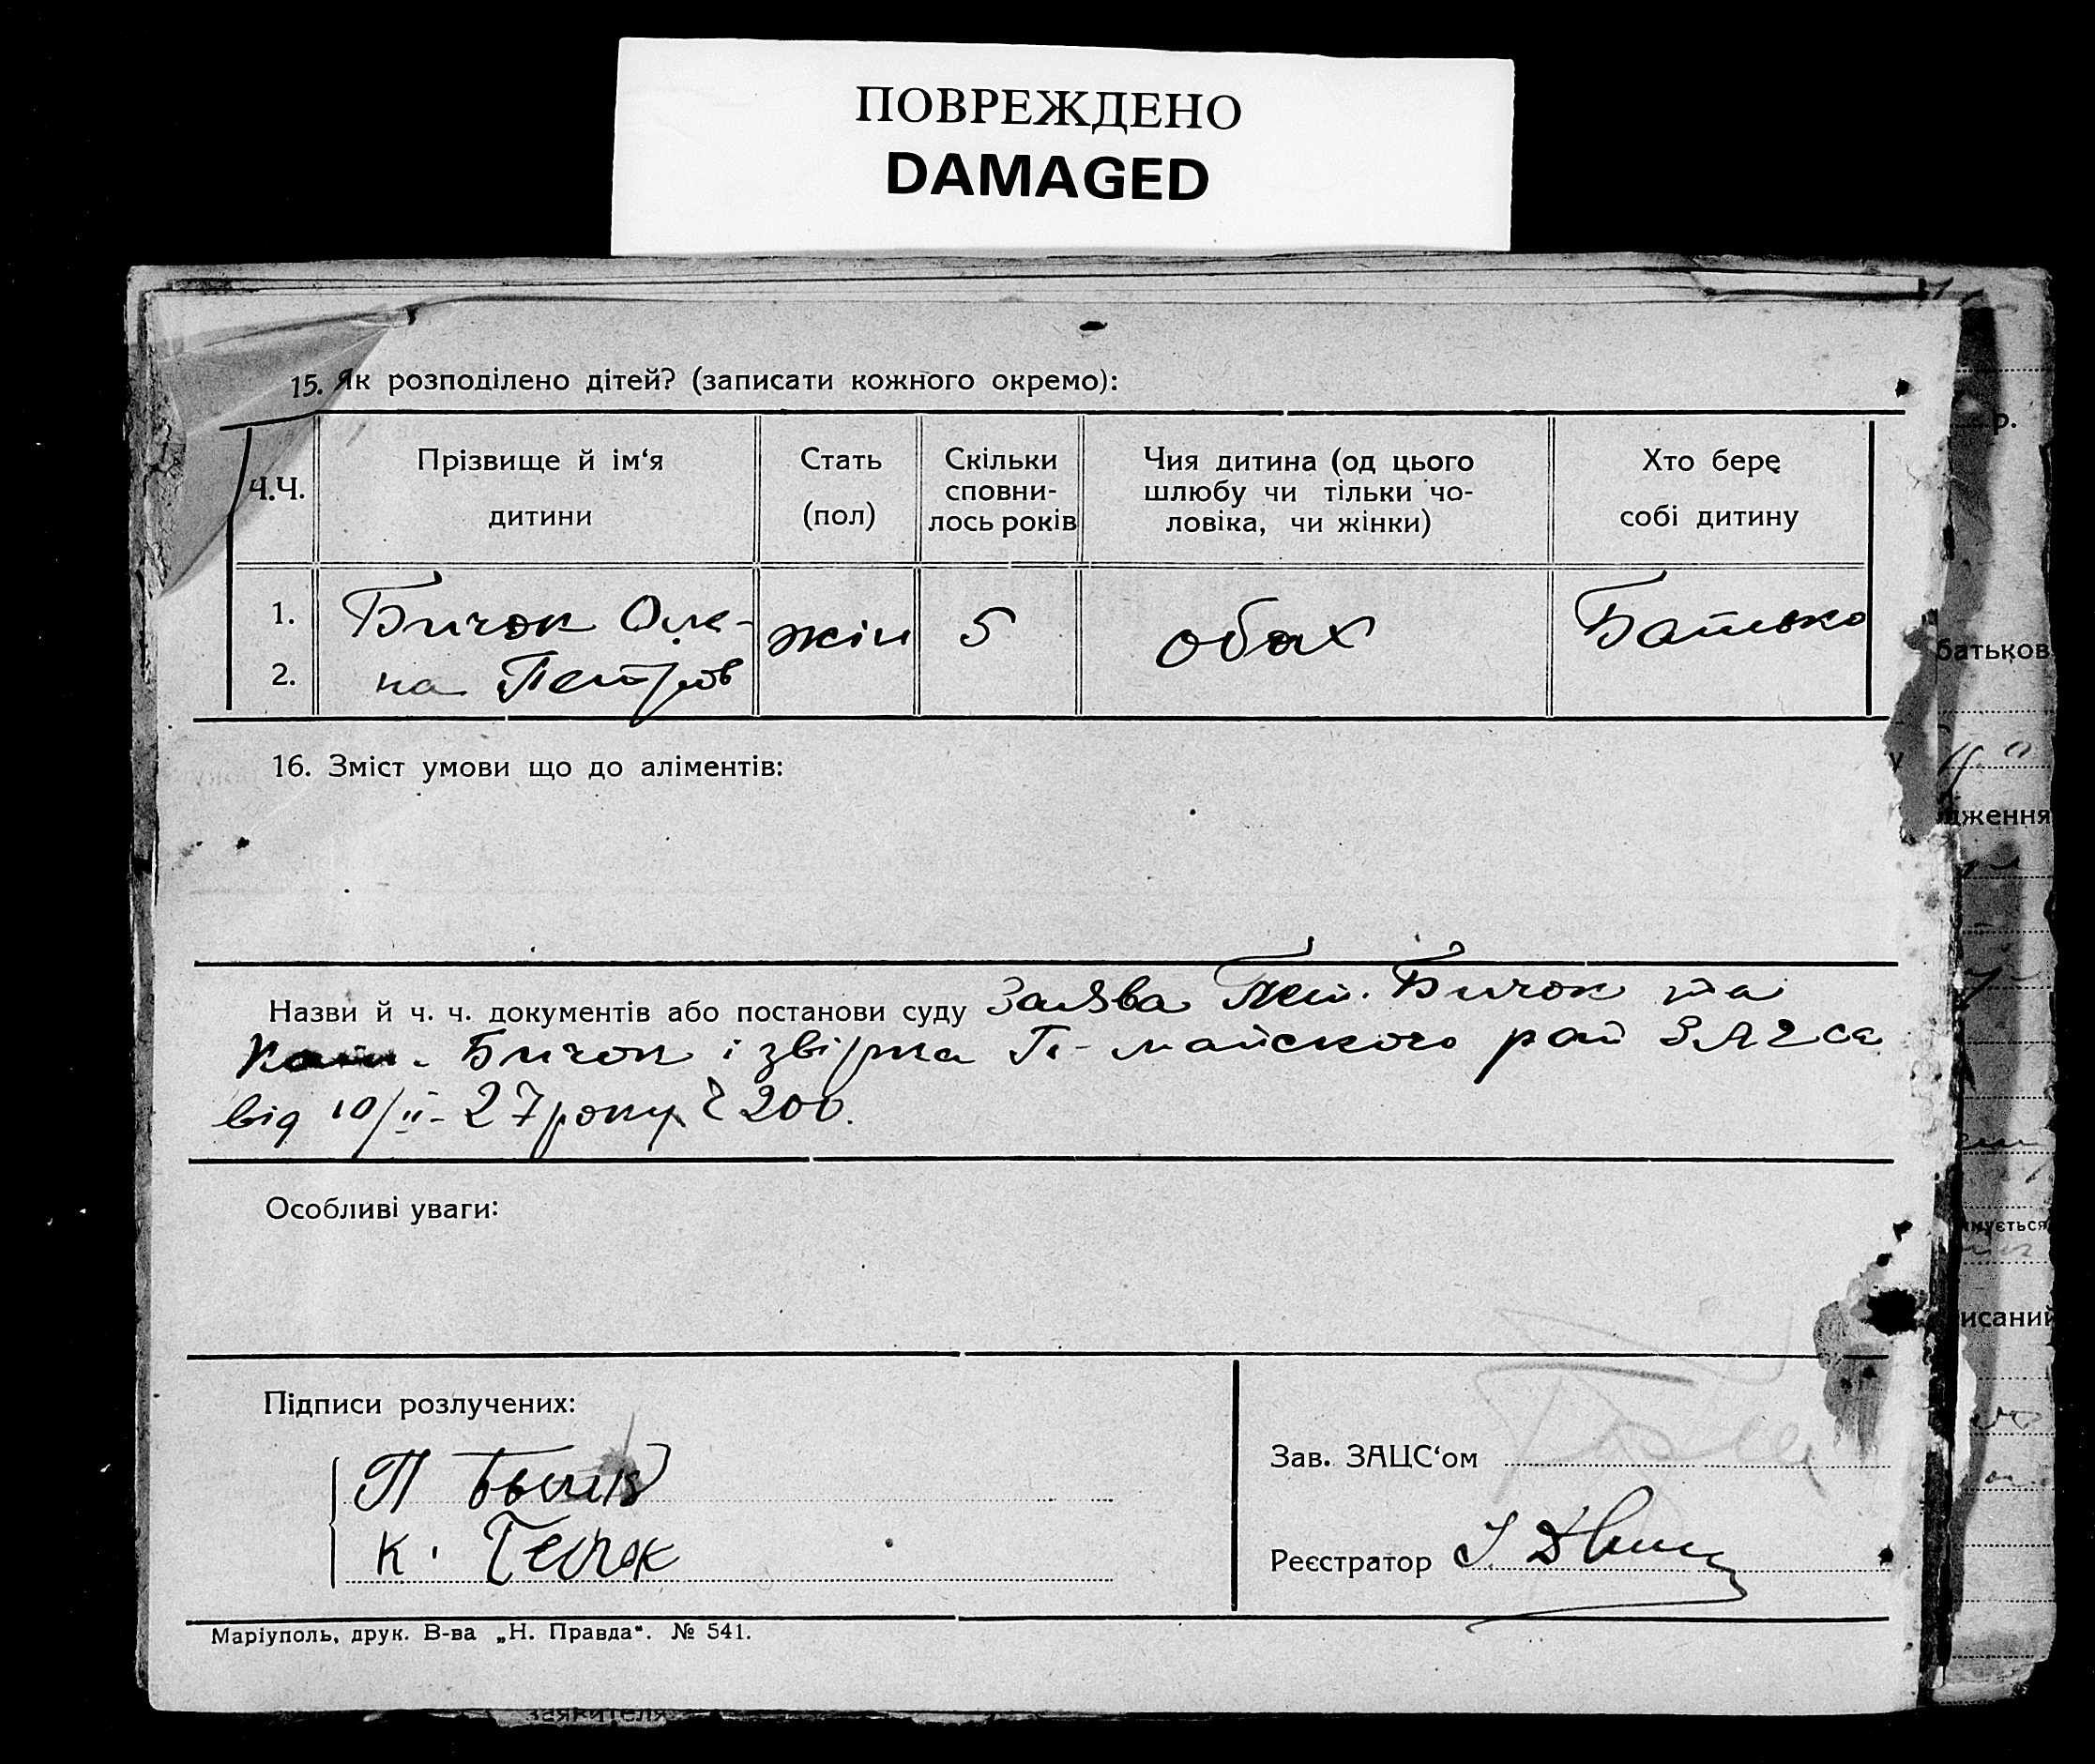 ПОВРЕЖДЕНО
DAMAGED
15. Як розподілено дітей? (записати кожного окремо):
Ч.Ч.
Прізвище й ім‘я
дитини
Стать
(пол)
Скільки
сповни-
лось років
Чия дитина (од цього
шлюбу чи тільки чо-
ловіка, чи жінки)
Хто бере
собі дитину
1.
2.
Бичок Оле-
на Петров
жін
5
обох
Батько
16. Зміст умови що до аліментів:
Назви й ч. ч. документів або постанови суду Заява Пет. Бичок та
Кат. Бичок і звірка П-майского рай ЗАГса
від 10/II-27 року 200.
Особливі уваги:
Підписи розлучених:
П
К. Бичок
Зав. ЗАЦС‘ом
Реєстратор
Маріуполь, друк. В-ва „Н. Правда“. № 541.
р.
батьков
дження
мується
исаний
заявителя